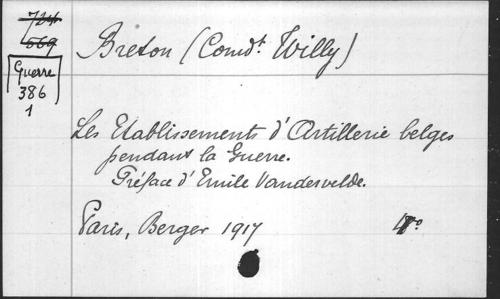 724
669
Guerre
386
1
Breton (Comdt Willy)
Les Etablissements d'Artillerie belges
pendant la Guerre.
Préface d'Emile Vandervelde.
Paris, Berger 1917 4º